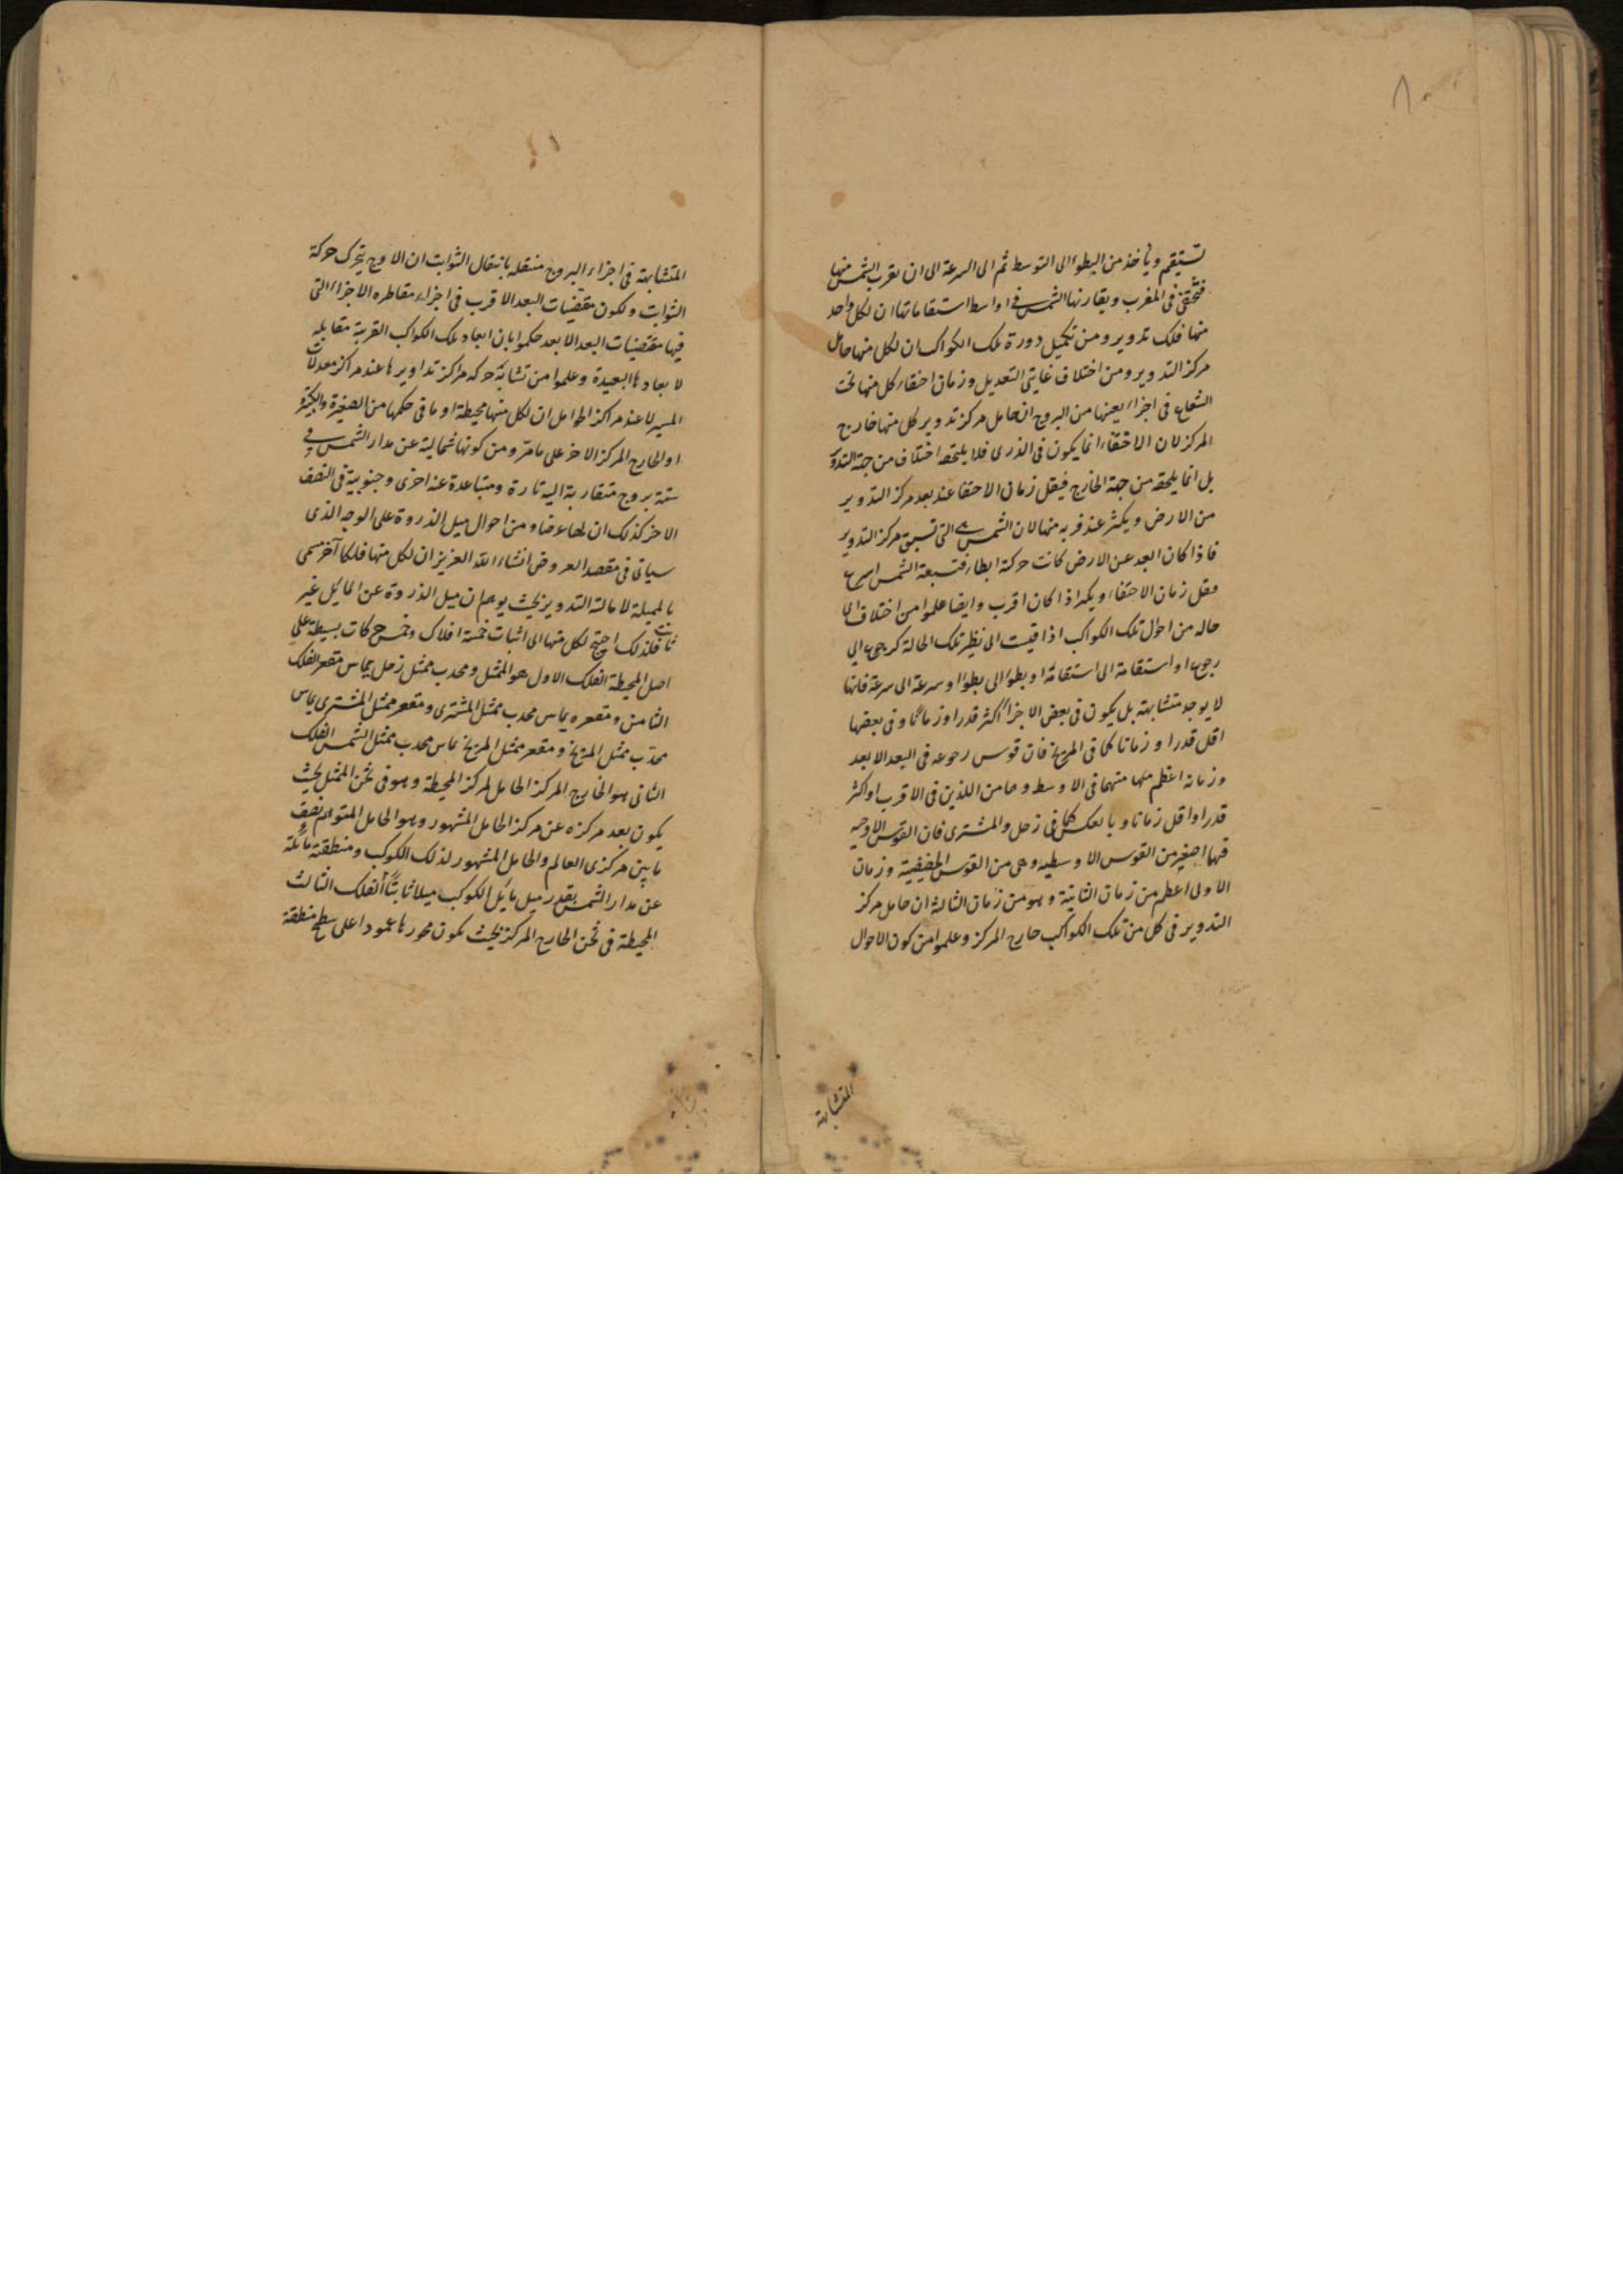 تستقيم ويأخذ من البطؤ الى التوسط ثم الى السرعة الى ان تقرب الشمس منها
فتختفى فى المغرب ويقارنها الشمس فى اواسط استقاماتها ان لكل واحد
منها فلك تدوير ومن تكميل دورة تلك الكواكب ان لكل منها حامل
مركز التدوير ومن اختلاف غايتى التعديل وزمان اختفاء كل منها تحت
الشعاع فى اجزاء بعينها من البروج ان حامل مركز تدوير كل منها خارج
المركز لان الاختفاء انما يكون فى الذرى فلا يلحقه اختلاف من جهة التدوير
بل انما يلحقه من جهة الخارج فيقل زمان الاختفا عند بعد مركز التدوير
من الارض ويكثر عند قربه منها لان الشمس هى التى تسبق مركز التدوير
فاذا كان ابعد عن الارض كانت حركة ابطاء فتسبقه الشمس اسرع
فيقل زمان الاختفاء ويكثر اذا كان اقرب وايضا علموا من اختلاف كل
حاله من احوال تلك الكواكب اذا قيست الى نظير تلك الحالة كرجوع الى
رجوع او استقامة الى استقامة او بطؤ الى بطؤ او سرعة الى سرعة فانها
لا يوجد متشابهة بل يكون فى بعض الاجزاء اكثر قدرا وزمانا وفى بعضها
اقل قدرا وزمانا كما فى المريخ فان قوس رجوعه فى البعد الابعد
وزمانه اعظم منها منهما فى الاوسط وهما من اللذين فى الاقرب او اكثر
قدرا واقل زمانا وبالعكس كما فى زحل والمشترى فان القوس الاوجيه
فيها اصغر من القوس الاوسطيه وهى من القوس الحضيضية وزمان
الاولى اعظم من زمان الثانية وهو من زمان الثالثة ان حامل مركز
التدوير فى كل من تلك الكواكب خارج المركز وعلموا من كون الاحوال
المتشابهة
المتشابهة فى اجزاء البروج منتقله بانتقال الثوابت ان الاوج يتحرك حركة
الثوابت ولكون مقتضيات البعد الاقرب فى اجزاء مقاطره الاجزاء التى
فيها مقتضيات البعد الابعد حكموا بان ابعاد تلك الكواكب القريبة مقابله
لابعادها البعيدة وعلموا من تشابه حركه مراكز تداويرها عند مراكز معدلات
المسير لا عند مراكز الحوامل ان لكل منها محيطة او ما فى حكمها من الصغيرة والكبيرة
او الخارج المركز الاخر على ما مر ومن كونها شمالية عن مدار الشمس فى
ستة بروج متقاربة اليه تارة ومتباعدة عنه اخرى وجنوبية فى النصف
الاخر كذلك ان لها عرضا ومن احوال ميل الذروة على الوجه الذى
سياتى فى مقصد العروض انشاء الله العزيز ان لكل منها فلكا آخر مسمى
بالمميلة لامالته التدوير بحيث يوهم ان ميل الذروة عن المائل غير
ثابت فلذلك احتيج لكل منها الى اثبات خمسة افلاك وخمس حركات بسيطة على
اصل المحيطة الفلك الاول هو الممثل ومحدب ممثل زحل يماس مقعر الفلك
الثامن ومقعره يماس محدب ممثل المشترى ومقعر ممثل المشترى يماس
محدب ممثل المريخ ومقعر ممثل المريخ يماس محدب ممثل الشمس الفلك
الثانى هو الخارج المركز الحامل لمركز المحيطة وهو فى ثخن الممثل بحيث
يكون بعد مركزه عن مركز الحامل المشهور وهو الحامل المتوهم نصف
ما بين مركزى العالم والحامل المشهور لذلك الكوكب ومنطقته مائلة
عن مدار الشمس بقدر ميل مايل الكوكب ميلا ثابتا الفلك الثالث
المحيطة فى ثخن الخارج المركز بحيث يكون محورها عمودا على سطح منطقة